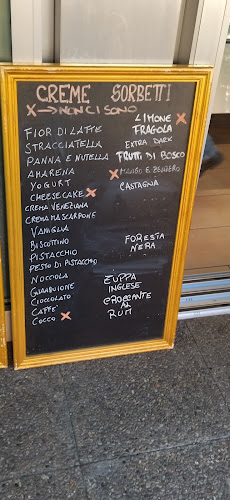 CREME SORBETTI
X → NON CI SONO
FIOR DI LATTE
STRACCIATELLA
PANNA E NUTELLA
AMARENA
YOGURT
CHEESECAKE X
CREMA VENEZIANA
CREMA MASCARPONE
VANIGLIA
BISCOTTINO
PISTACCHIO
PESTO DI PISTACCHIO
NOCCIOLA
GIANDUIONE
CIOCCOLATO
CAFFE'
COCCO X
LIMONE
FRAGOLA X
EXTRA DARK
FRUTTI DI BOSCO
X MANGO E ZENZERO
CASTAGNA
FORESTA
NERA
ZUPPA
INGLESE
CROCCANTE
AL
RUM